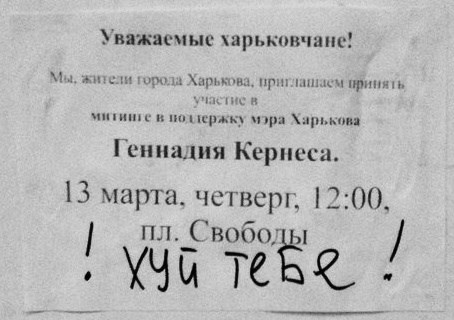 Уважаемые харьковчане!
Мы, жители города Харькова, приглашаем принять
участие в
митинге в поддержку мэра Харькова
Геннадия Кернеса.
13 марта, четверг, 12:00,
пл. Свободы
! хуй тебе !